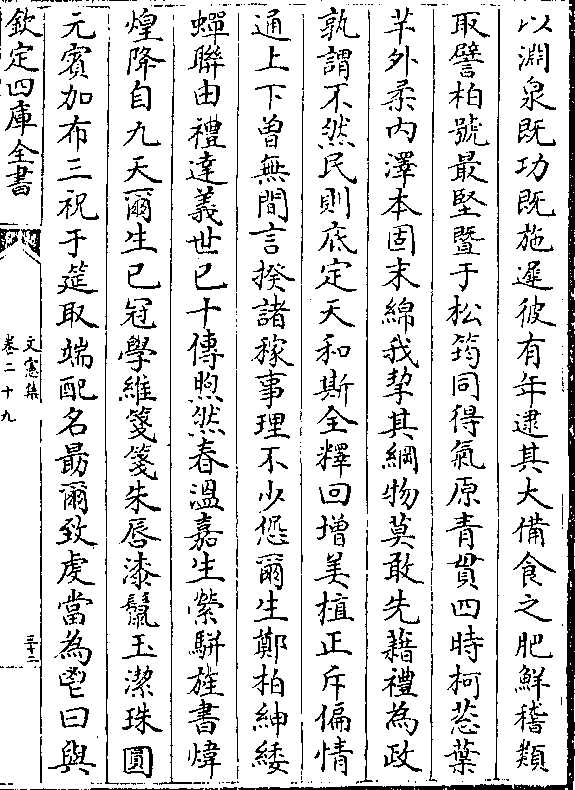 以淵泉既功既施遲彼有年逮其大備食之肥鮮稽類
取譬柏號最堅暨于松筠同得氣原青貫四時柯蒼葉
芊外柔內澤本固末綿我挈其綱物莫敢先藉禮為政
孰謂不然民則底定天和斯全釋回增美植正斥偏情
通上下曾無間言揆諸稼事理不少愆爾生鄭柏紳緌
蟬聯由禮達義世已十傳煦然春溫嘉生縈駢旌書煒
煌降自九天爾生已冠學維箋箋朱唇漆鬒玉潔珠圓
元賓加布三祝于筵取端配名勗爾致虔當為鬯曰與
欽定四庫全書
文憲集
卷二十九
三十二